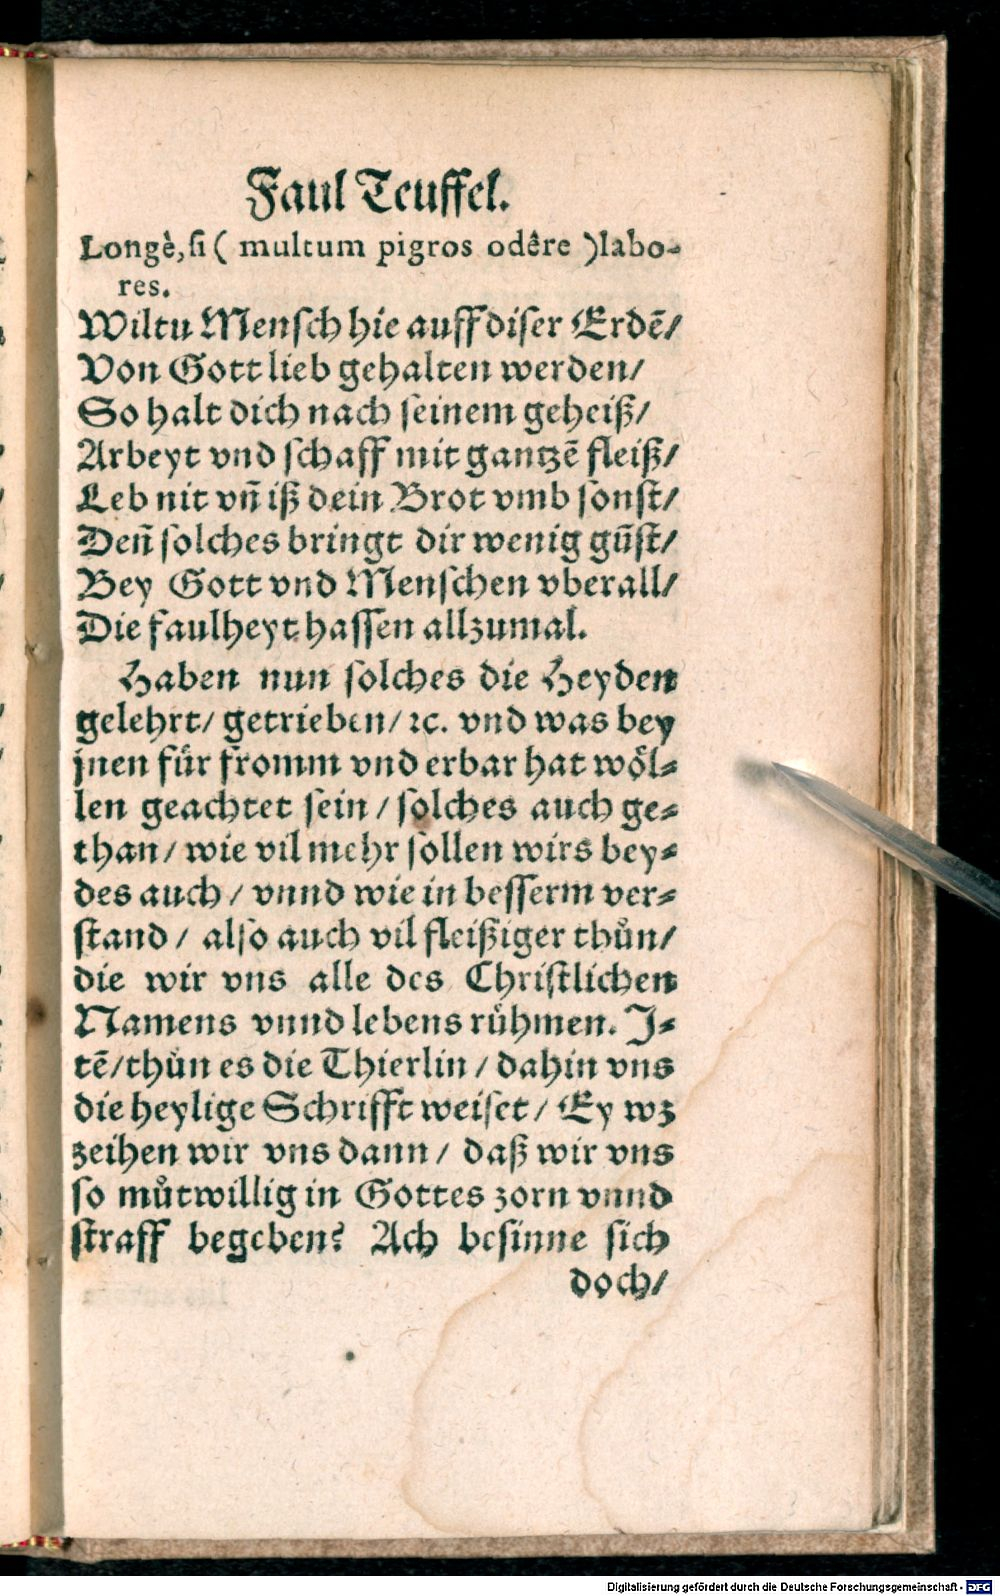 Faul Teuffel.
Longè, si ( multum pigros odêre ) labo-
res.
Wiltu Mensch hie auff diser Erdẽ/
Von Gott lieb gehalten werden/
So halt dich nach seinem geheiß/
Arbeyt vnd schaff mit gantzẽ fleiß/
Leb nit vñ iß dein Brot vmb sonst/
Deñ solches bringt dir wenig gũst/
Bey Gott vnd Menschen vberall/
Die faulheyt hassen allzumal.
Haben nun solches die Heyden
gelehrt/ getrieben/ ꝛc. vnd was bey
jnen fuͤr fromm vnd erbar hat woͤl⸗
len geachtet sein / solches auch ge⸗
than/ wie vil mehr sollen wirs bey⸗
des auch / vnnd wie in besserm ver⸗
stand / also auch vil fleißiger thuͦn/
die wir vns alle des Christlichen
Namens vnnd lebens ruͤhmen. J⸗
tẽ/ thuͦn es die Thierlin / dahin vns
die heylige Schrifft weiset / Ey wz
zeihen wir vns dann / daß wir vns
so muͦtwillig in Gottes zorn vnnd
straff begeben? Ach besinne sich
doch/
Digitalisierung gefördert durch die Deutsche Forschungsgemeinschaft - DFG